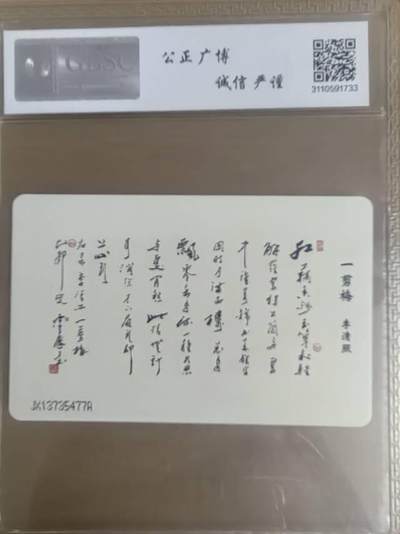 公正 广博
诚信 严谨
3110591733
一剪梅 李清照
红藕香残玉簟秋轻
解罗裳独上兰舟云
中谁寄锦书来雁字
回时月满西楼花自
飘零水自流一种相思
此情无计
可消除才下眉头却
上心头
李清照一剪梅
JK13735477A